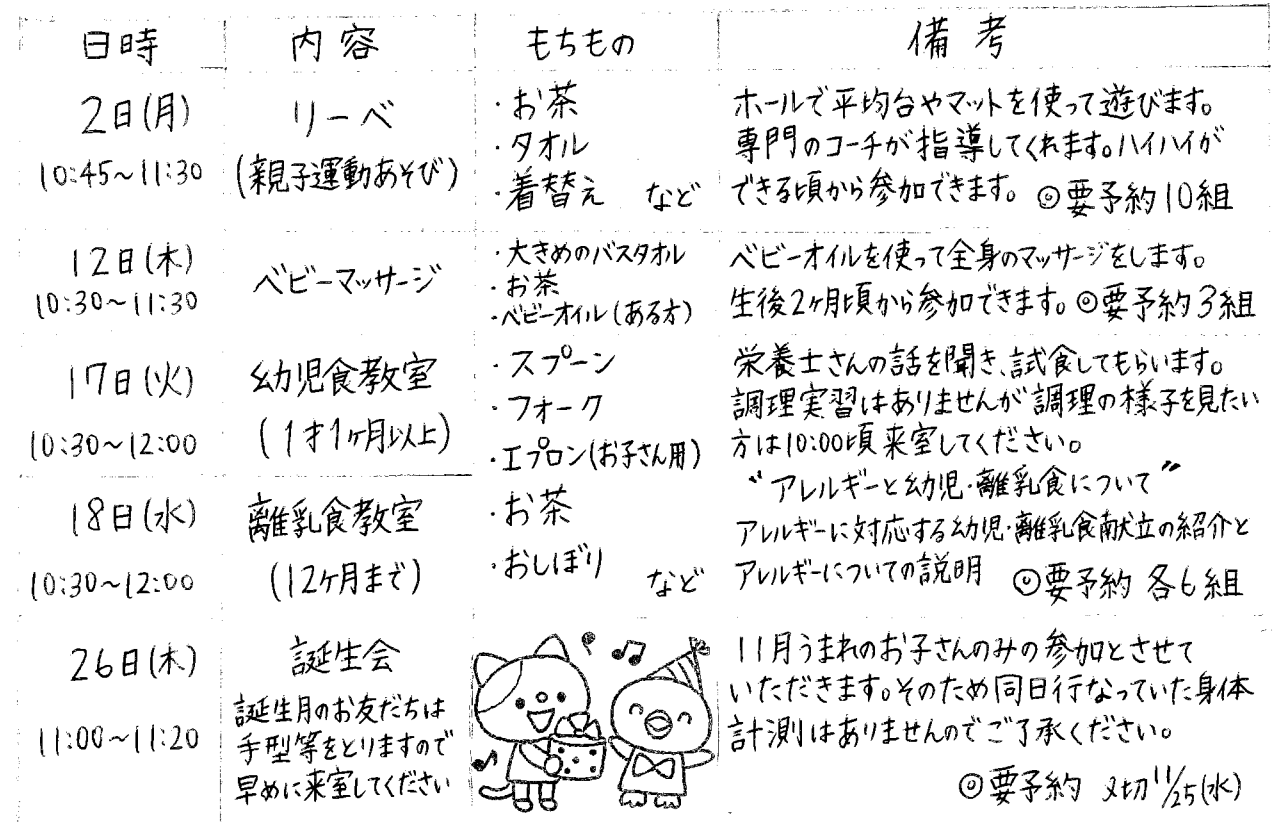 日時 内容 もちもの 備考
2日(月)
10:45~11:30
リーベ
(親子運動あそび)
・お茶
・タオル
・着替え など
ホールで平均台やマットを使って遊びます。
専門のコーチが指導してくれます。ハイハイが
できる頃から参加できます。 ◎要予約10組
12日(木)
10:30~11:30
ベビーマッサージ
・大きめのバスタオル
・お茶
・ベビーオイル(ある方)
ベビーオイルを使って全身のマッサージをします。
生後2ヶ月頃から参加できます。◎要予約3組
17日(火)
10:30~12:00
幼児食教室
(1才1ヶ月以上)
・スプーン
・フォーク
・エプロン(お子さん用)
栄養士さんの話を聞き、試食してもらいます。
調理実習はありませんが調理の様子を見たい
方は10:00頃来室してください。
18日(水)
10:30~12:00
離乳食教室
(12ヶ月まで)
・お茶
・おしぼり など
"アレルギーと幼児・離乳食について"
アレルギーに対応する幼児・離乳食献立の紹介と
アレルギーについての説明 ◎要予約 各6組
26日(木)
11:00~11:20
誕生会
誕生月のお友だちは
手型等をとりますので
早めに来室してください
11月うまれのお子さんのみの参加とさせて
いただきます。そのため同日行なっていた身体
計測はありませんのでご了承ください。
◎要予約 〆切11/25(水)